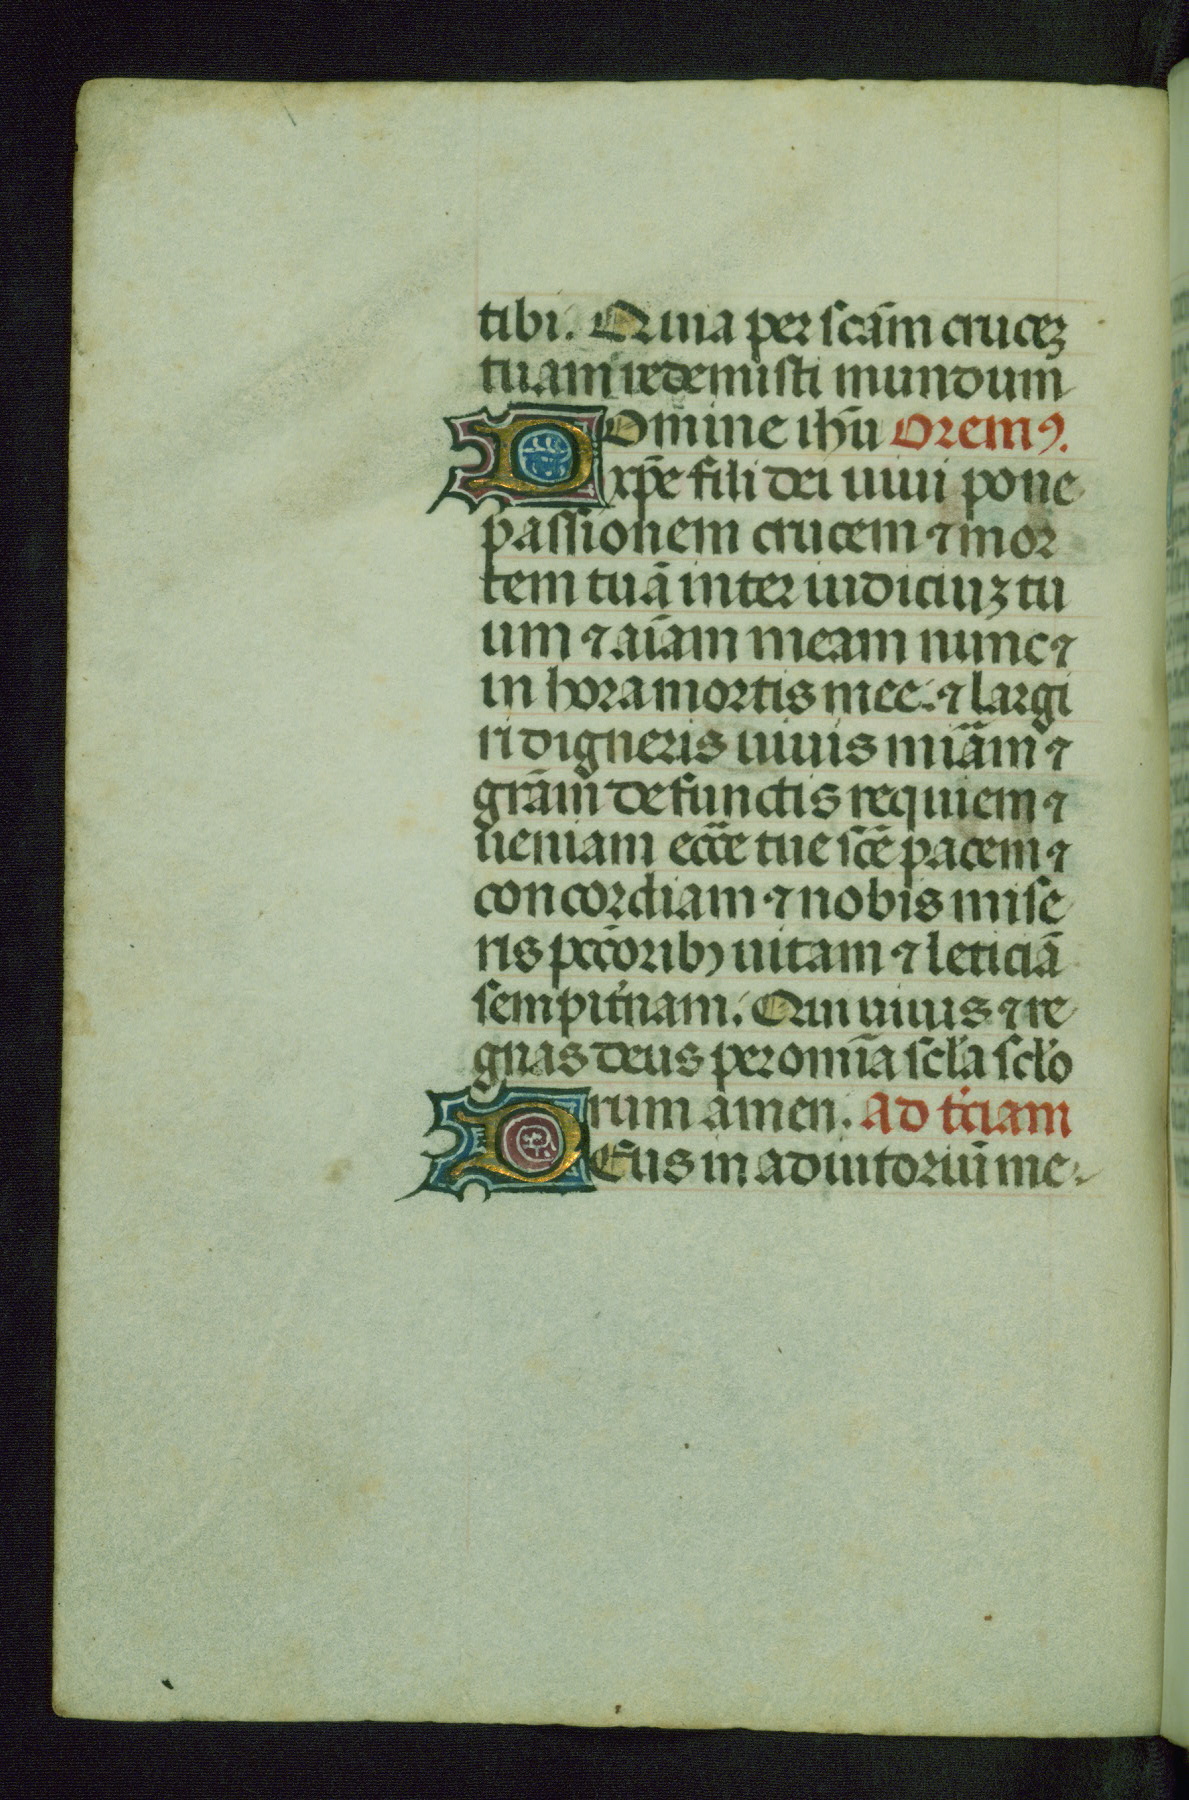 tibi. Quia per scām crucez
tuam redemisti mundum
DOmine ihū Oremꝰ.
xp̄e fili dei uiui pone
passionem crucem ⁊ mor
tem tuā inter iudiciuz tu
um ⁊ aīam meam nunc ⁊
in hora mortis mee. ⁊ largi
ri digneris uiuis miām ⁊
grām defunctis requiem ⁊
ueniam eccē tue scē pacem ⁊
concordiam ⁊ nobis mise
ris pccōribꝫ uitam ⁊ leticiā
sempit'nam. Qui uiuis ⁊ re
gnas deus per omīa scl'a scl'o
rum amen. Ad t'ciam
DEus in adiutoriū me